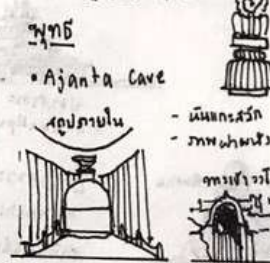 พุทธ
• Ajanta Cave
สถูปภายใน
- หินแกะสลัก
- ภาพฝาผนัง